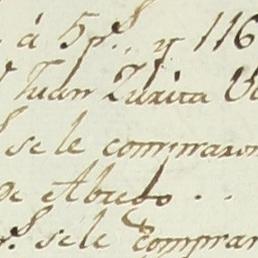 á 5 p.s y 116
Juan Zurita
se le compraron
de Abreto . .
r.s sele compraron